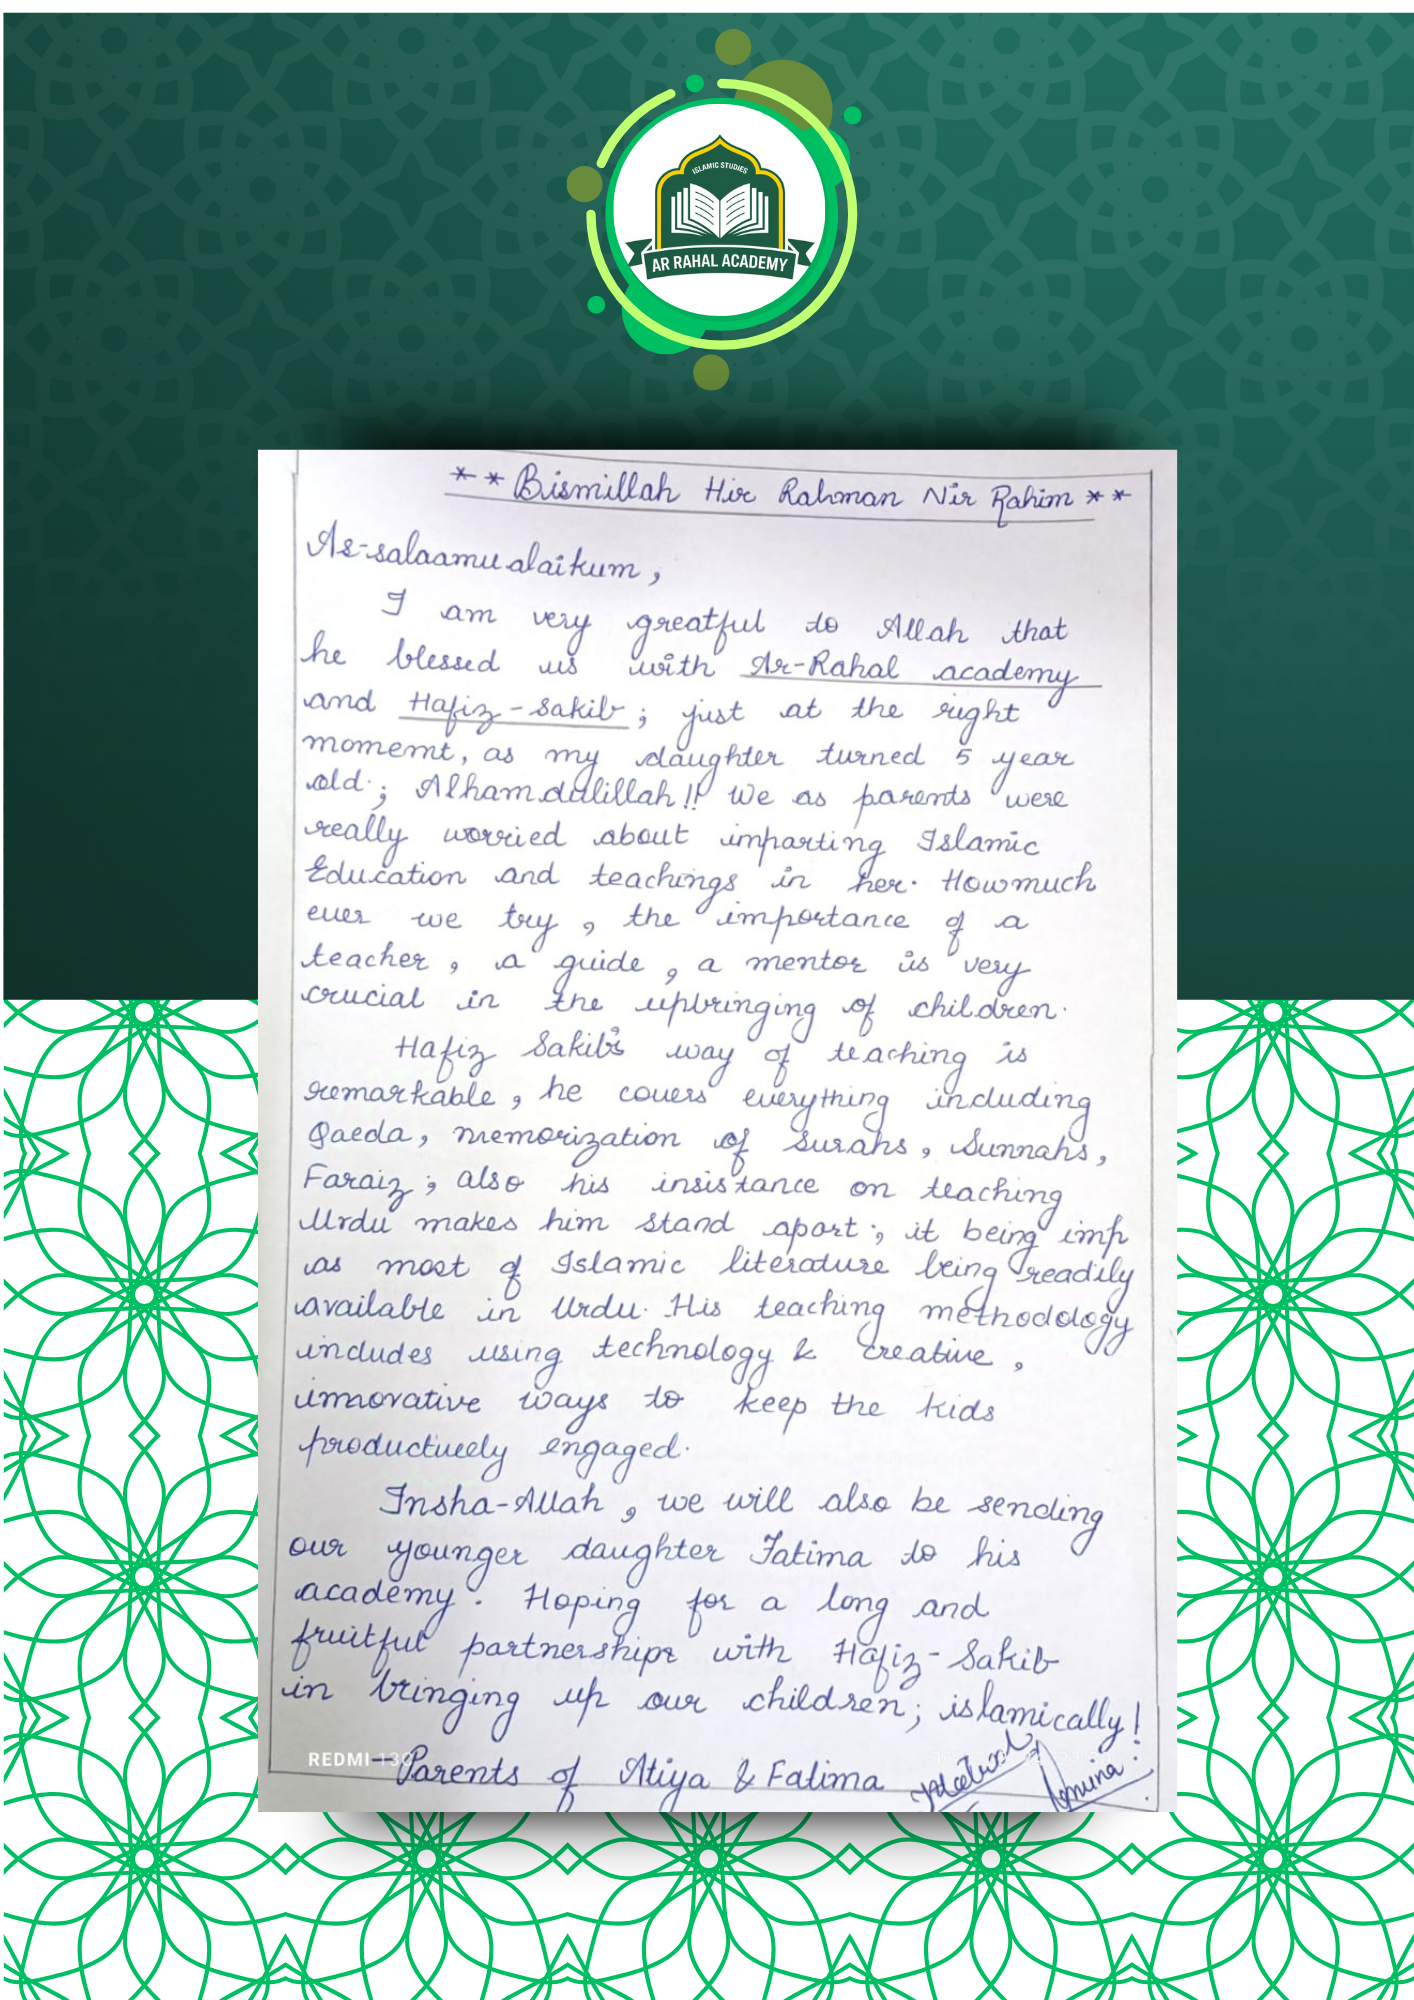 ISLAMIC STUDIES
AR RAHAL ACADEMY
** Bismillah Hir Rahman Nir Rahim **
As-salaamu alaikum,
I am very greatful to Allah that
he blessed us with Ar-Rahal academy
and Hafiz-Sakib; just at the right
moment, as my daughter turned 5 year
old.; Alhamdulillah!! We as parents were
really worried about imparting Islamic
Education and teachings in her. Howmuch
ever we try, the importance of a
teacher, a guide, a mentor is very
crucial in the upbringing of children.
Hafiz Sakib's way of teaching is
remarkable, he covers everything including
Qaeda, memorization of Surahs, Sunnahs,
Faraiz; also his insistance on teaching
Urdu makes him stand apart; it being imp
as most of Islamic literature being readily
available in Urdu. His teaching methodology
includes using technology & creative,
innovative ways to keep the kids
productively engaged.
Insha-Allah, we will also be sending
our younger daughter Fatima to his
academy. Hoping for a long and
fruitful partnerships with Hafiz-Sakib
in bringing up our children; islamically!
REDMI 13C
- Parents of Atiya & Fatima
Amina